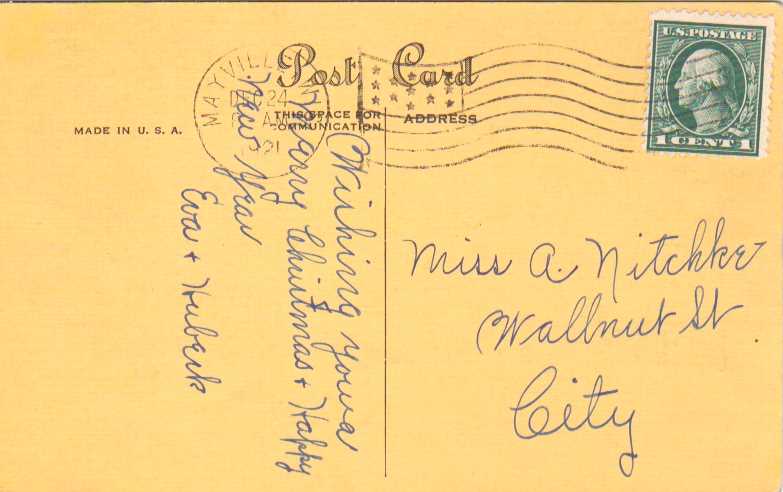 Post Card
THIS SPACE FOR
COMMUNICATION
ADDRESS
MADE IN U. S. A.
MAYVILLE
DEC 24
AM
1921
U.S. POSTAGE
1 CENT 1
Wishing you a
Merry Christmas + Happy
New Year
Eva + Hubert
Miss A. Nitchke
Wallnut St
City